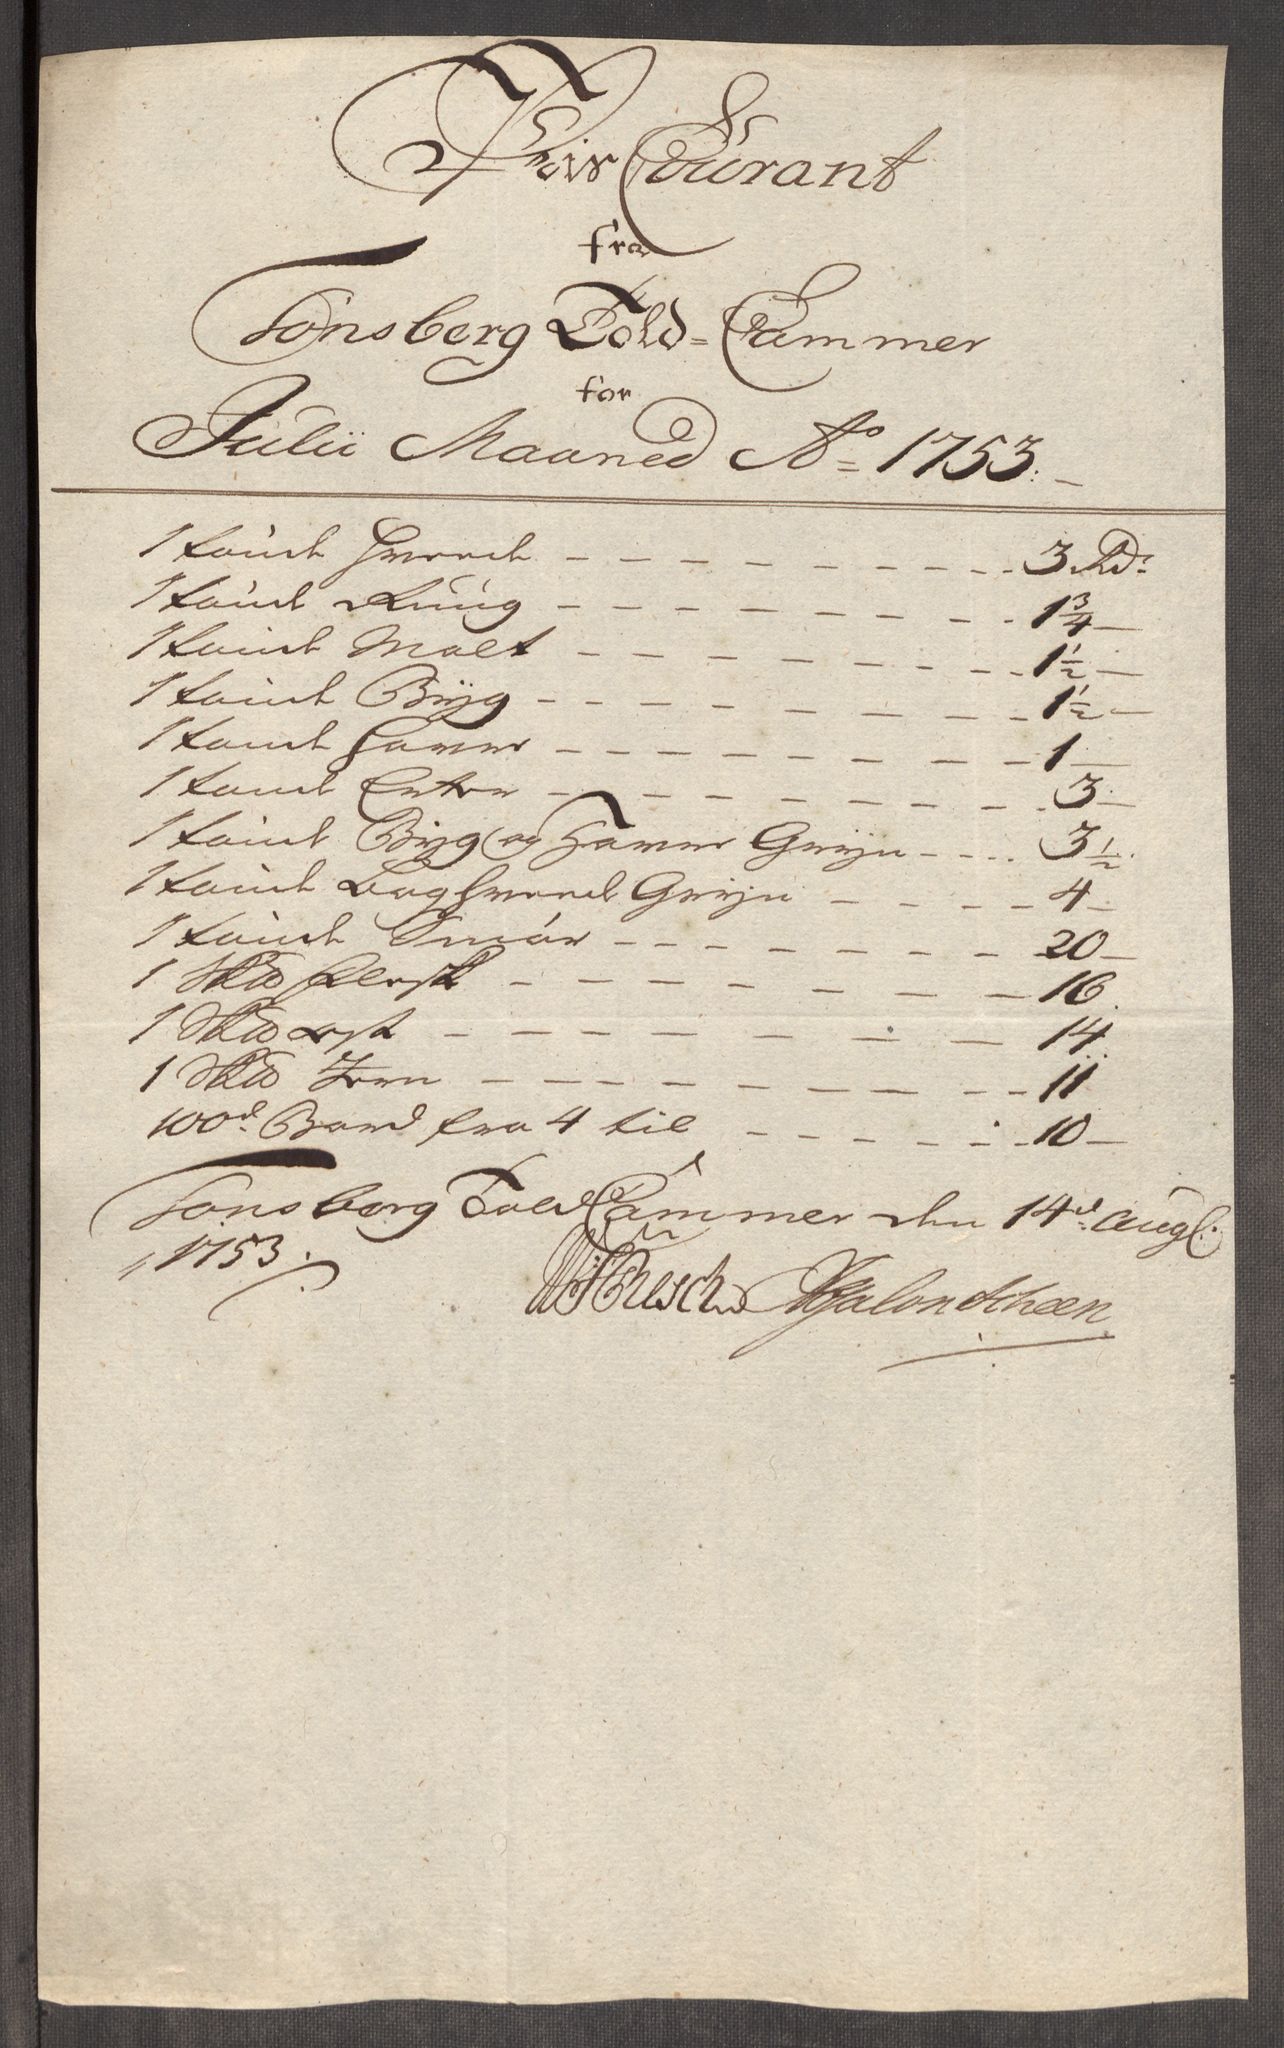 Pris Courant
fra
Tønsberg Told=Cammer
for
Julii Maaned Ao= 1753.
1 tønde Hvede 3 Rd:
1 tønde Rug 1 3/4
1 tønde Malt 1 1/2
1 tønde Byg 1 1/2
1 tønde Havre 1
1 tønde Erter 3
1 tønde Byg og Havre Gryn 3 1/2
1 tønde Boghvede Gryn 4
1 tønde Smør 20
1 Skd Flesk 16
1 Skd ost 14
1 Skd Jern 11
100d. Bord fra 4 til 10
Tønsberg Told Cammer den 14d. Aug:
1753.